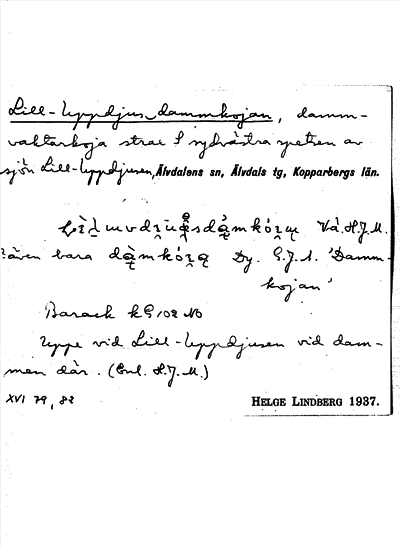 Lill-Uppdjus-dammkojan, damm-
vaktarkoja strax S sydvästra spetsen av
sjön Lill-Uppdjusen, Älvdalens sn, Älvdals tg, Kopparbergs län.
Vå. H.J.M.
även bara Dy. G.J.S. 'Damm-
kojan'
Barack kG 102 NO
Uppe vid Lill-Uppdjusen vid dam-
men där. (Enl. H.J.M.)
XVI 79, 82
HELGE LINDBERG 1937.